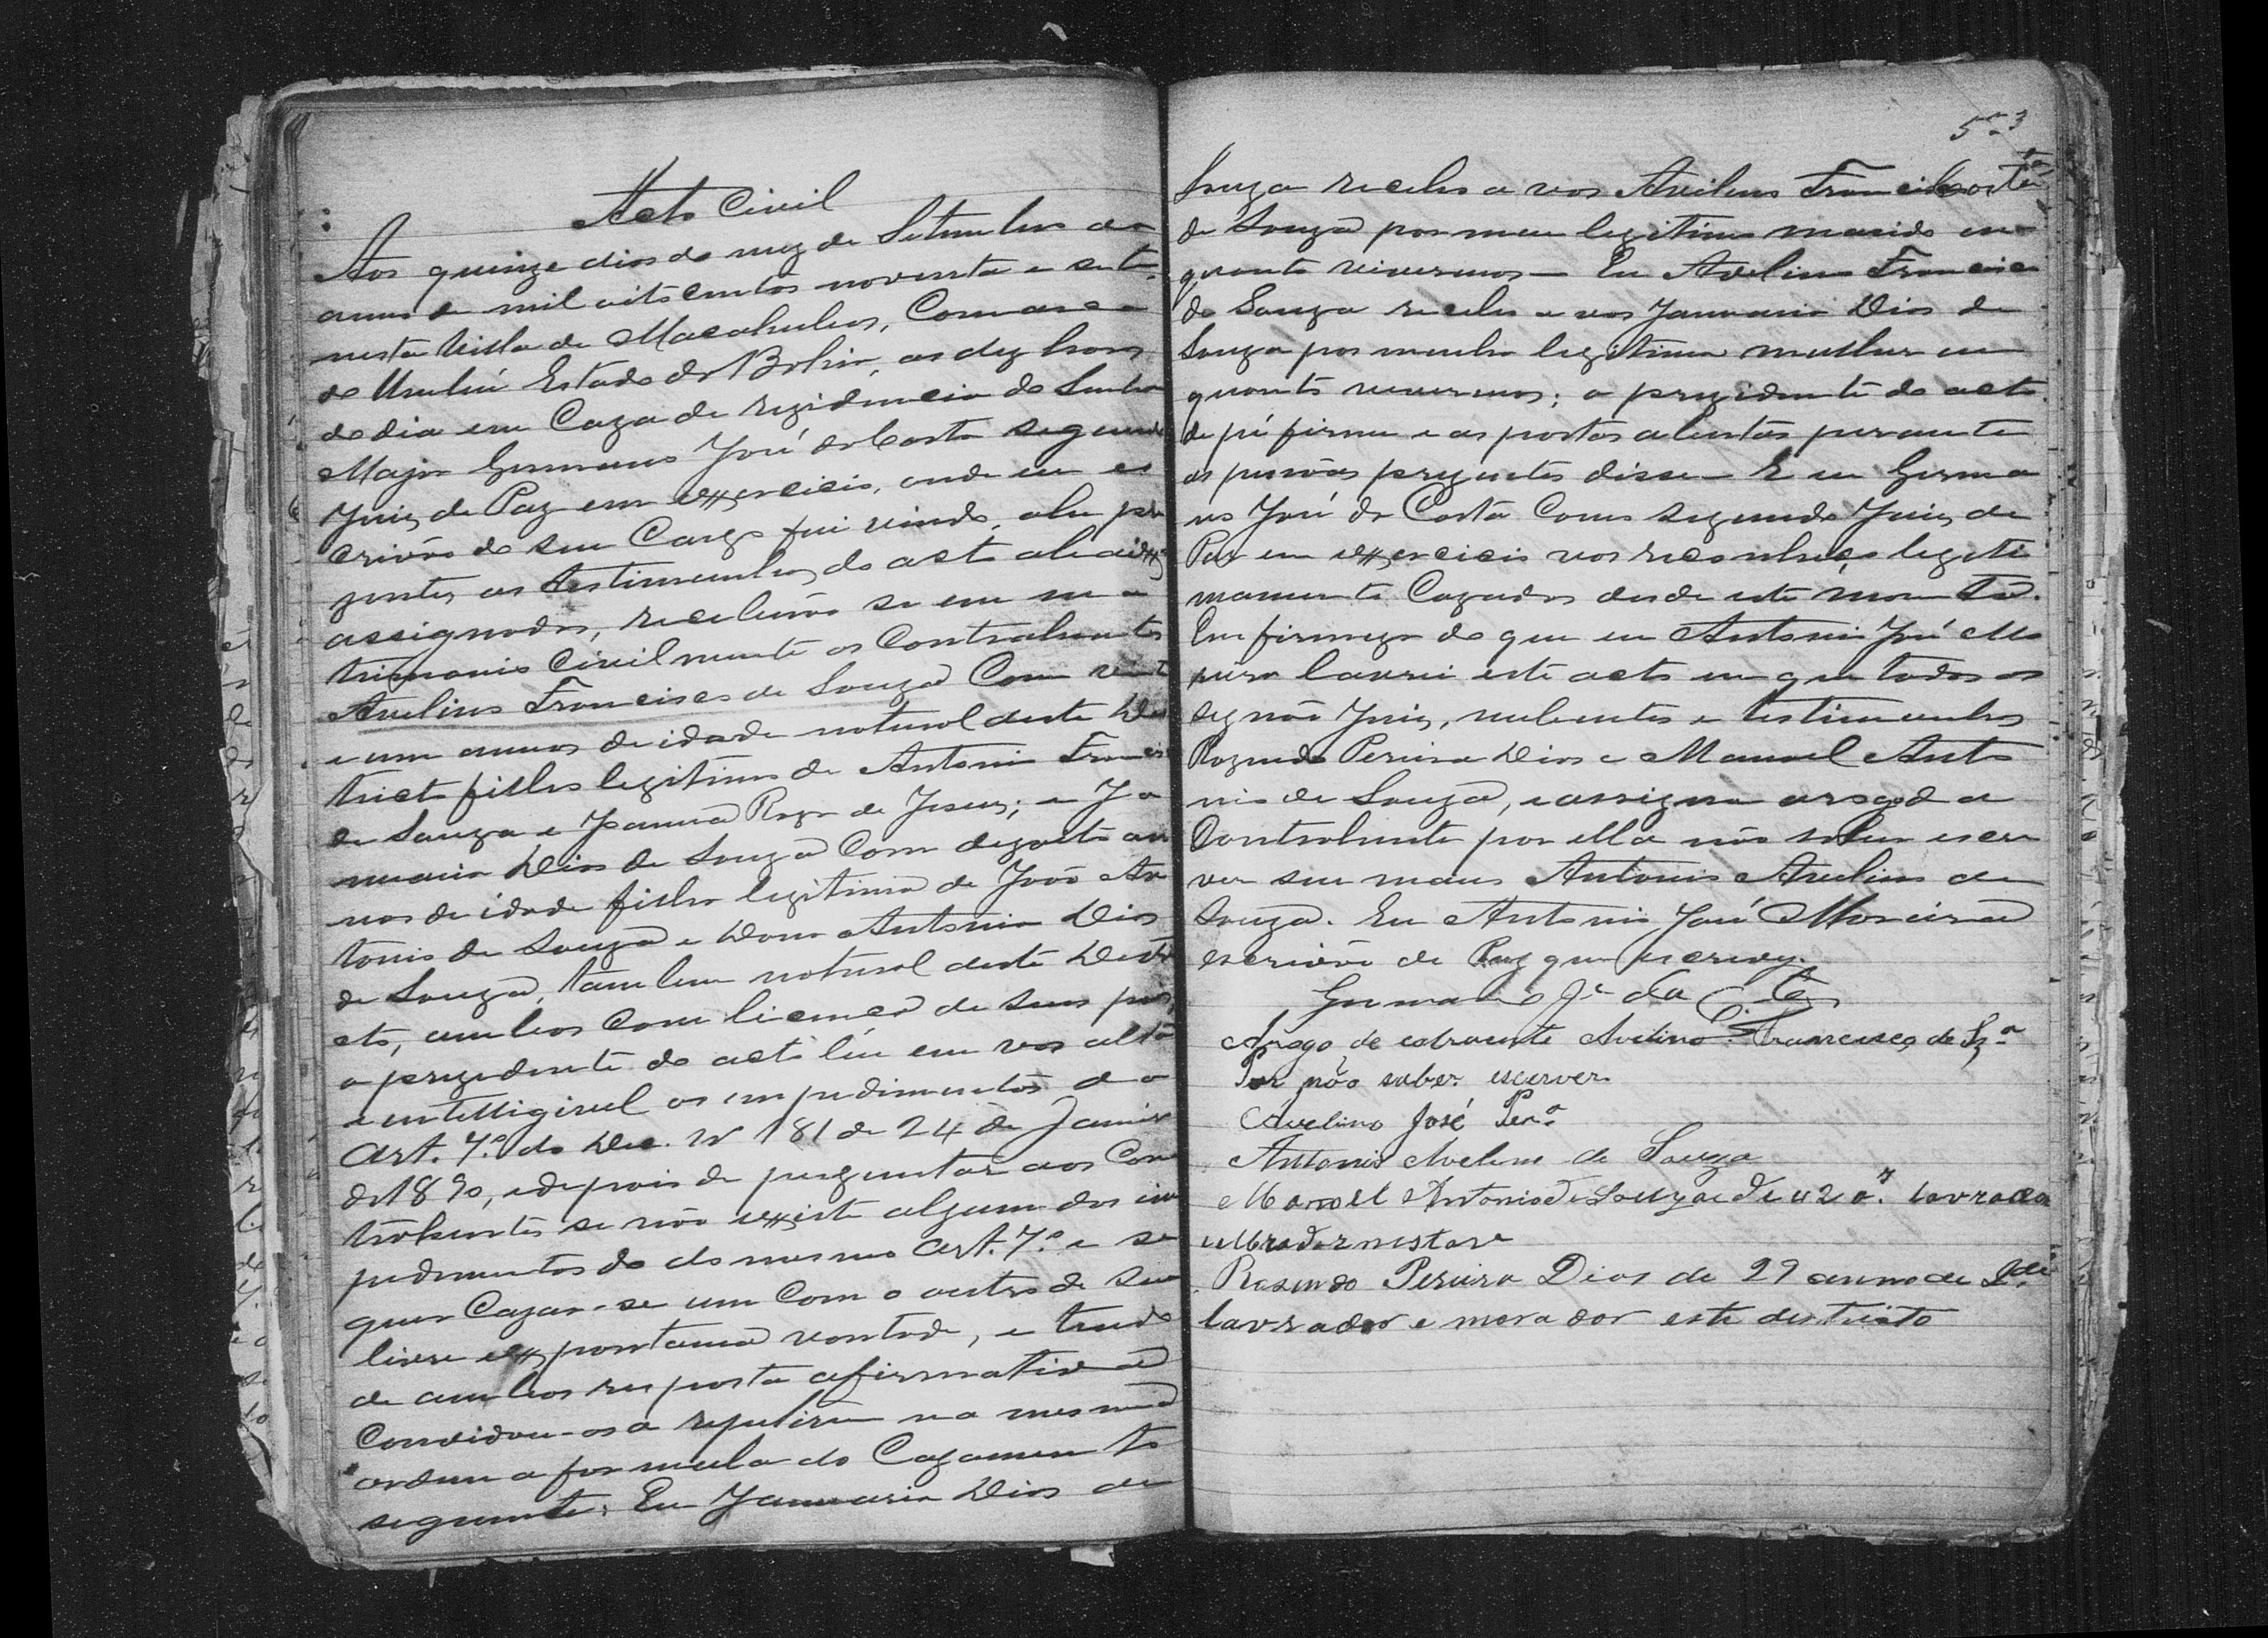 Acto Civil
Aos quinze dias do mez de Setembro do
anno de mil oitocentos noventa e sete,
nesta Villa de Macahubas, Comarca
de Urubú Estado da Bahia, as dez horas
do dia em Caza de rezidencia do Senhor
Major Germano José da Costa segundo
Juiz de Paz em exercicio, onde eu es
crivão de seu Cargo fui vindo, ahi pre
zentes as testimunhas do acto abaixo
assignados, receberão se em ma
trimonio Civilmente os Contrahentes
Avelino Francisco de Souza Com vinte
e um annos de idade natural deste Dis
tricto filho legitimo de Antonio Francisco
de Souza e Joanna Roza de Jesus; e Ja
nuaria Dias de Souza Com dezoito an
nos de idade filha legitima de João An
tonio de Souza e Dona Antonia Dias
de Souza, tambem natural deste Distri
cto, ambos Com licença de seus pais,
o prezidente do acto leu em vós alta
e intelligivel os impedimentos do
Art. 7.º do Dec. N 181 de 24 de Janeiro
de 1890, e depois de perguntar aos Con
trahentes se não existe algum dos im
pedimentos do do mesmo Art. 7.º e se
quer Cazar-se um Com o outro de sua
livre e expontania vontade, e tendo
de ambos resposta afirmativa
Convidou-os a repetirem na mesma
ordem a formula do Cazamento
seguinte: Eu Januaria Dias de
53
Souza recebo a vos Avelino Francisco
de Souza por meu legitimo marido en
quanto vivermos — Eu Avelino Francisco
de Souza recebo a vos Januaria Dias de
Souza por minha legitima mulher en
quanto vivermos; o prezidente do acto
de pé firme e as portas abertas perante
as pessoas prezentes disse — E eu Germa
no José da Costa Como segundo Juiz de
Paz em exercicio vos reconheço legiti
mamente Cazados desde este momento.
Em firmeza do que eu Antonio José Mo
reira lavrei este acto em que todos as
signão Juiz, nubentes e testimunhas
Rozendo Pereira Dias e Manoel Anto
nio de Souza, e assigna arogo da
Contrahente por ella não saber escre
ver seu mano Antonio Avelino de
Souza. Eu Antonio José Moreira
escrivão de Paz que escrevy.
Germano Jé da Costa
Arogo de cotraente Avelino Francisco de Sza
Por não saber escerver
Avelino José Pera
Antonio Avelino de Souza
Manoel Antonio de Souza de 42 a. lavrador
e Morador nesta
Rosendo Pereira Dias de 29 anno de Ide
lavrador e morador este destricto